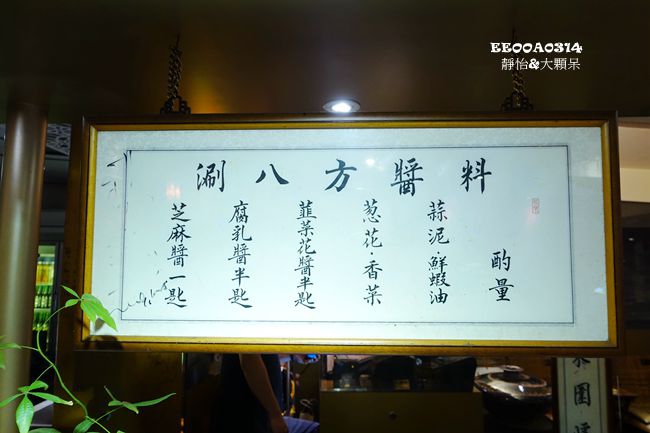 EE00A0314
靜怡&大顆呆
涮八方醬料
芝麻醬一匙
腐乳醬半匙
韮菜花醬半匙
葱花·香菜
蒜泥鮮蝦油
酌量
圍